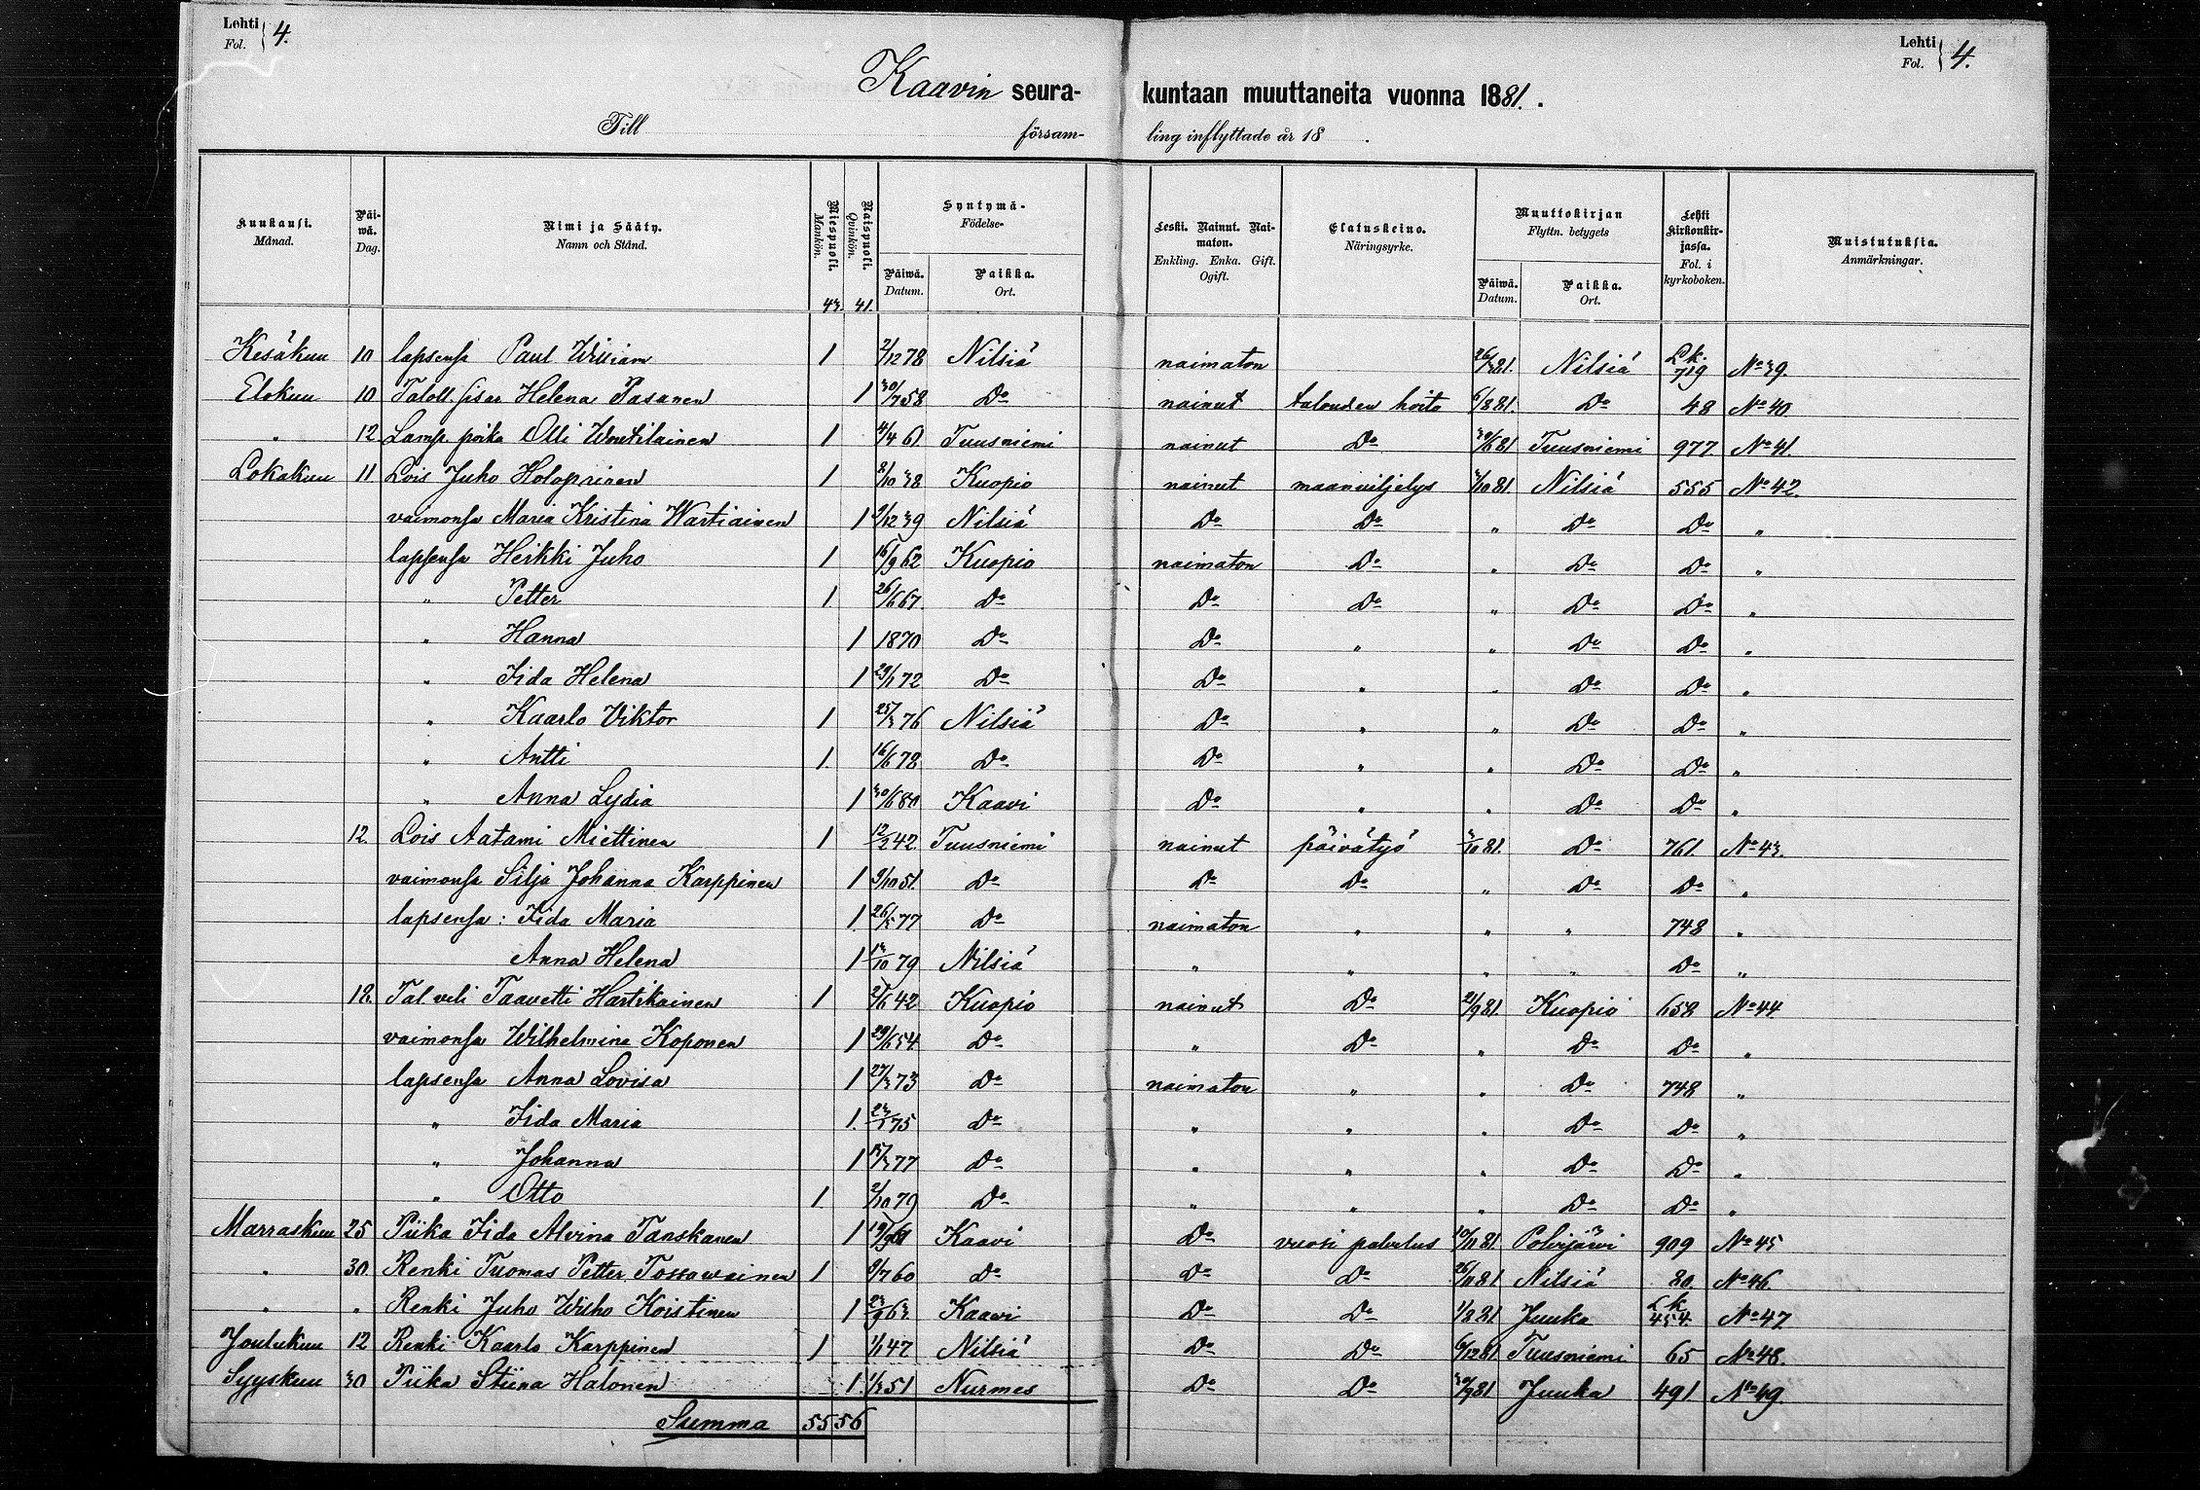 Lehti Fol. } 4.
Lehti Fol. } 4.
Kaavin seurakuntaan muuttaneita vuonna 1881.
Till församling inflyttade år 18 .
Kuukausi. Månad. | Päiwä. Dag. | Nimi ja Sääty. Namn och Stånd. | Miespuoli. Mankön. | Naispuoli. Qvinkön. | Syntymä- Födelse- | Leski. Nainut. Naimaton. Enkling. Enka. Gift. Ogift. | Elatuskeino. Näringsyrke. | Muuttokirjan Flyttn. betygets | Lehti kirkonkirjassa. Fol. i kyrkoboken. | Muistutuksia. Anmärkningar.
Päiwä. Datum. | Paikka. Ort. | Päiwä. Datum. | Paikka. Ort.
43. 41.
Kesäkuu 10 lapsensa Paul William 1 2/12 78 Nilsiä naimaton 26/3 81. Nilsiä Lk. 719 No 39.
Elokuu 10 Taloll. sisar Helena Pasanen 1 30/7 58 Do nainut talouden hoito 6/8 81. Do 48 No 40
" 12 Lamp. poika Olli Woutilainen 1 4/4 61 Tuusniemi nainut Do 30/6 81 Tuusniemi 977. No 41.
Lokakuu 11 Lois Juho Holopainen 1 8/10 38 Kuopio nainut maanviljelys 7/10 81. Nilsiä 555 No 42.
vaimonsa Maria Kristina Wartiainen 1 9/12 39 Nilsiä Do Do " Do Do "
lapsensa Heikki Juho 1 16/9 62 Kuopio naimaton Do " Do Do "
" Petter 1. 26/6 67. Do Do Do " Do Do "
" Hanna 1 1870 Do Do " " Do Do "
" Iida Helena 1 29/1 72 Do Do " " Do Do "
" Kaarlo Viktor 1 25/3 76 Nilsiä Do " " Do Do "
" Antti 1. 16/6 78 Do Do " " Do Do "
" Anna Lydia 1 30/6 80 Kaavi Do " " Do Do "
12. Lois Aatami Miettinen 1 12/2 42. Tuusniemi nainut päivätyö 3/10 81. Do 761. No 43.
vaimonsa Silja Johanna Karppinen 1 9/10 51. Do Do Do " Do Do "
lapsensa: Iida Maria 1. 26/5 77 Do naimaton " " " 748 "
Anna Helena 1 13/10 79 Nilsiä " " " " Do "
18. Tal veli Taavetti Hartikainen 1 2/6 42 Kuopio nainut Do 21/9 81. Kuopio 658 No 44
vaimonsa Wilhelmina Koponen 1 29/6 54 Do " Do " Do Do "
lapsensa Anna Lovisa 1 27/3 73 Do naimaton " " Do 748 "
" Iida Maria 1. 23/1 75 Do " " " Do Do "
" Johanna 1 15/3 77 Do " " " Do Do "
" Otto 1. 2/10 79 Do " " " Do Do "
Marraskuu 25 Piika Iida Alvina Tanskanen 1 19/9 61 Kaavi Do vuosi palvelus 10/11 81 Polvijärvi 909 No 45
" 30. Renki Tuomas Petter Tossawainen 1 9/7 60 Do Do Do 26/10 81 Nilsiä 80. No 46.
" " Renki Juho Wilho Koistinen 1 23/9 63 Kaavi Do Do 1/8 81 Juuka Lk 454. No 47
Joulukuu 12 Renki Kaarlo Karppinen 1 1/1 47 Nilsiä Do Do 6/12 81 Tuusniemi 65 No 48.
Syyskuu 30 Piika Stiina Halonen 1. 1/3 51 Nurmes Do Do 30/9 81 Juuka 491 No 49.
Summa 55 56